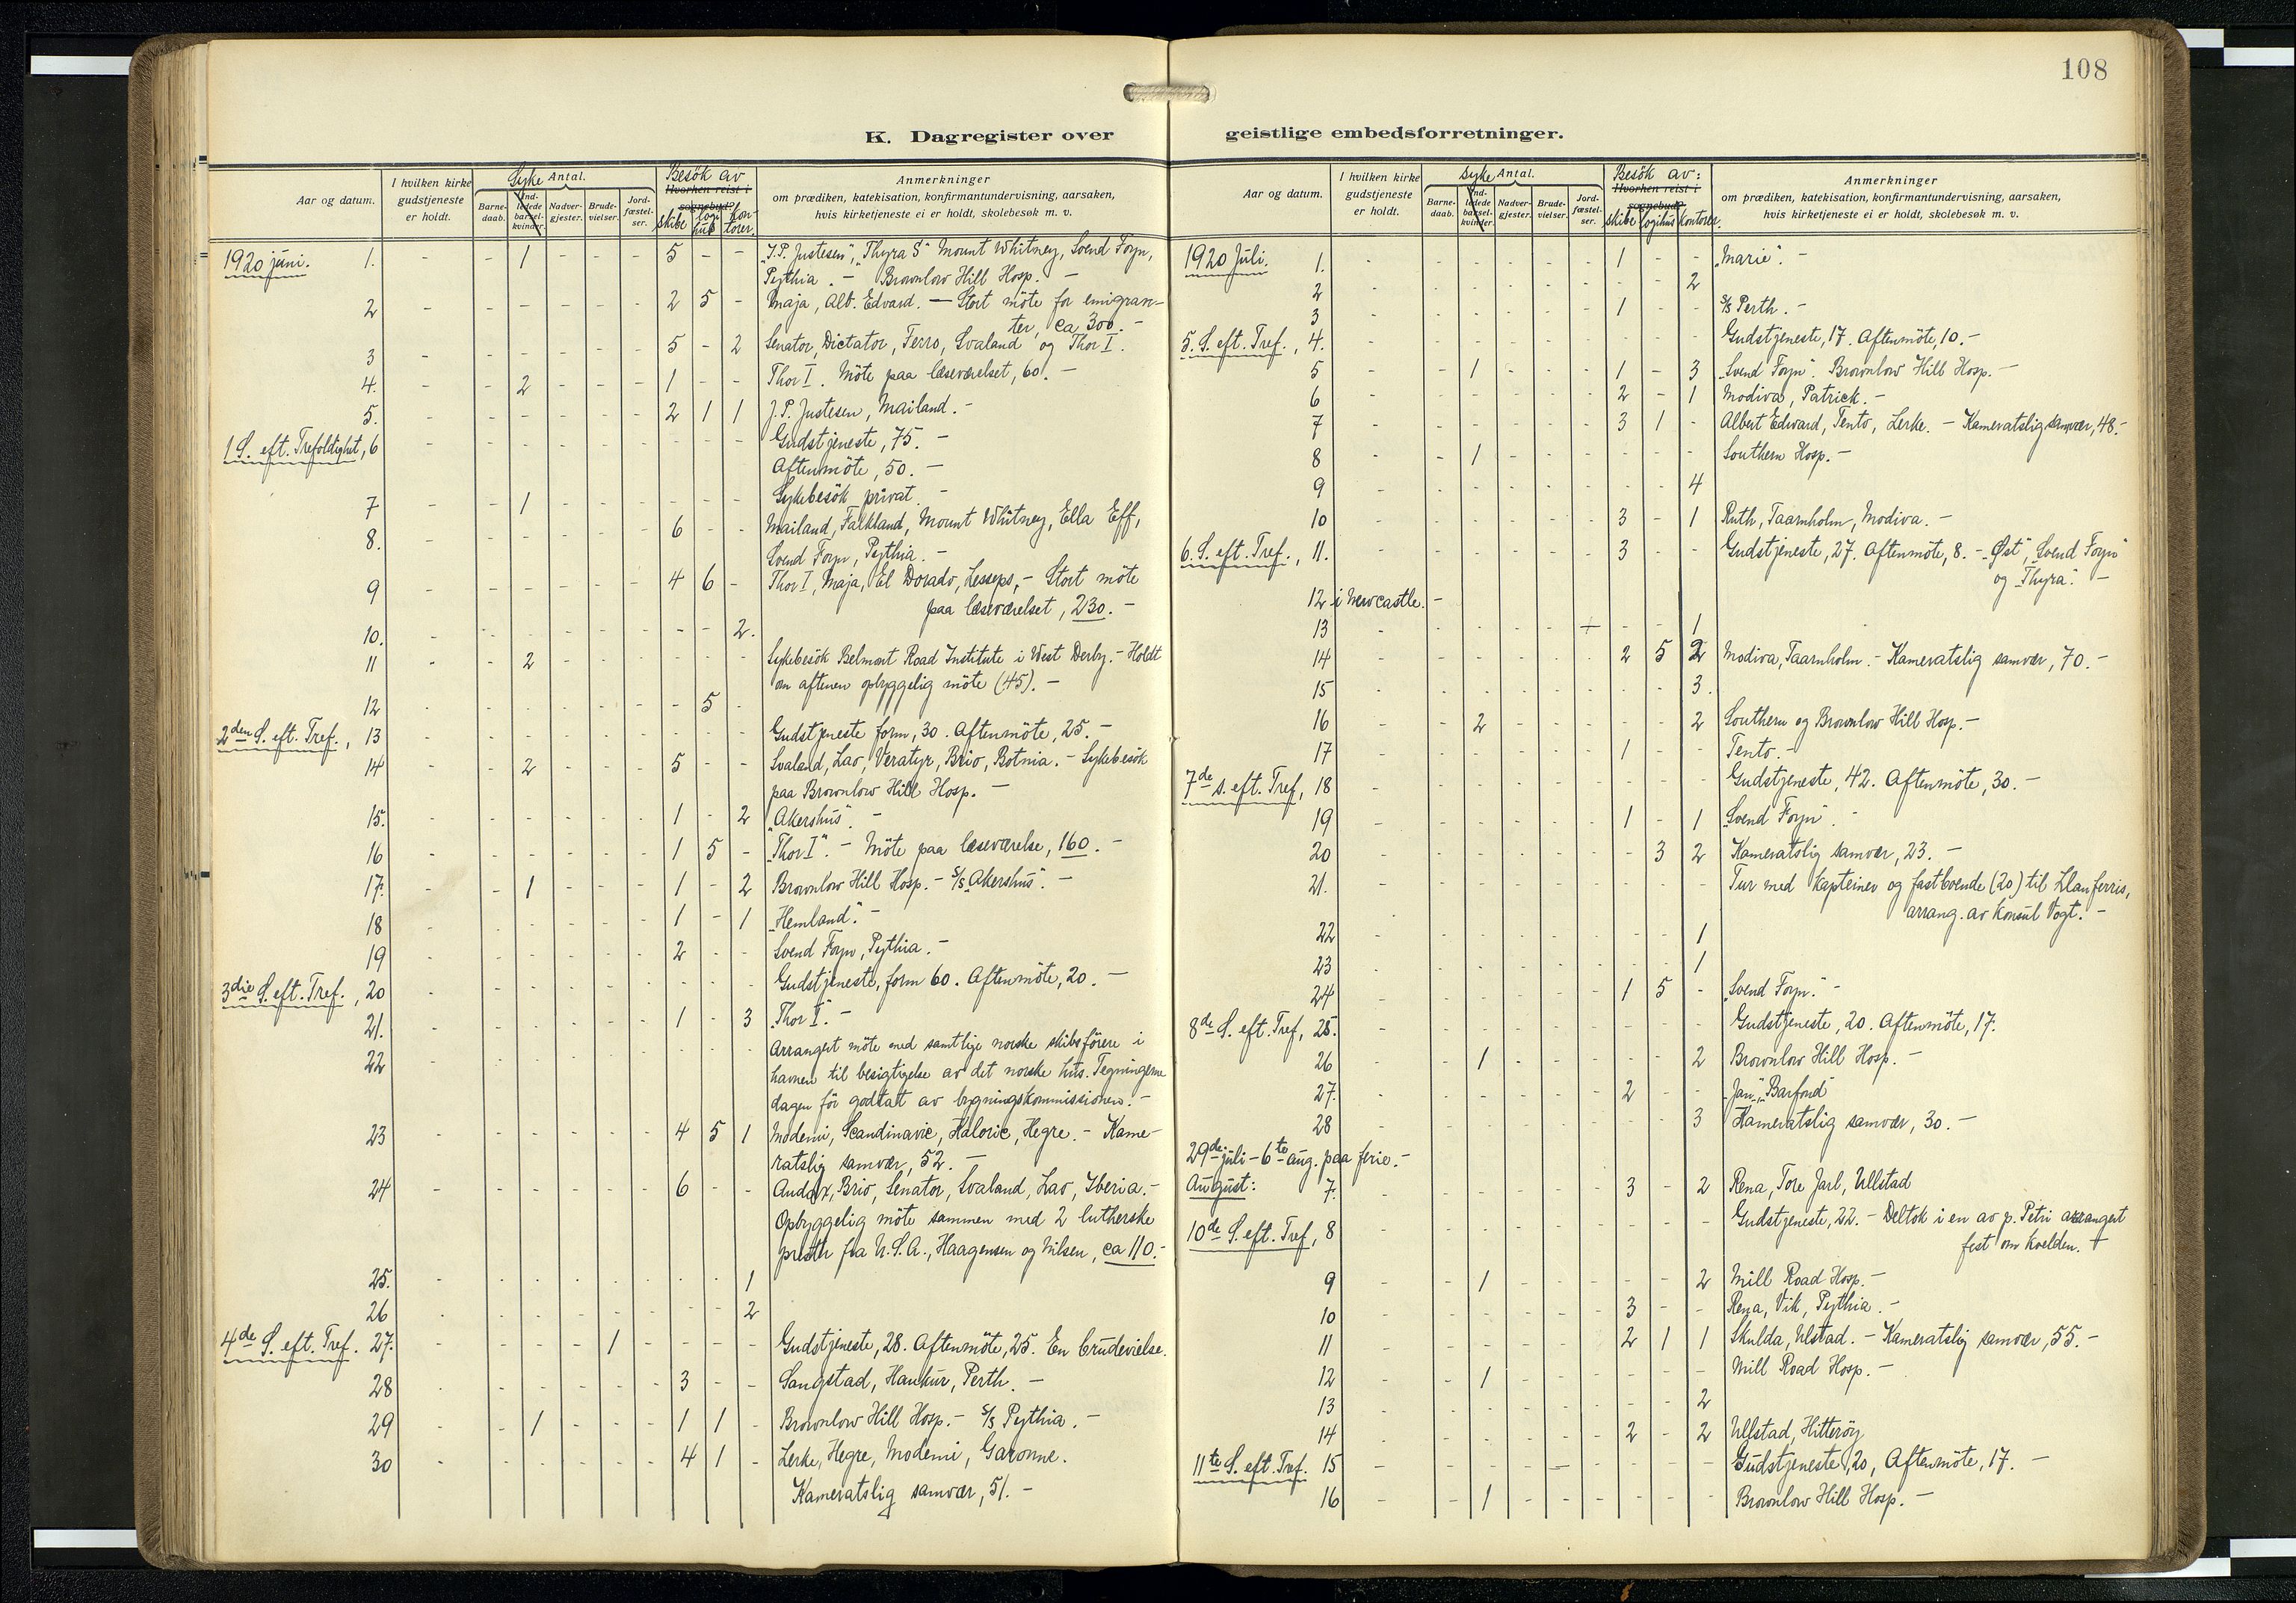 108
K. Dagregister over
Aar og datum. I hvilken kirke gudstjeneste er holdt. Syke Antal. Barnedaab. Indledede barselkvinder. Nadvergjester. Brudevielser. Jordfæstelser. Besök av Hvorhen reist i sognebud? skibe logihus kontorer. Anmerkninger om prædiken, katekisation, konfirmantundervisning, aarsaken, hvis kirketjeneste ei er holdt, skolebesøk m. v.
1920 juni. 1. - - 1 - - - 5 - - "J.P. Justesen", "Thyra S" Mount Whitney, Svend Foyn,
Pythia. - Brownlow Hill Hosp. -
2 - - - - - - 2 5 - Maja, Alb. Edvard. - Stort möte for emigran-
ter, ca 300. -
3 - - - - - - 5 - 2 Senator, Dictator, Terro, Svaland og Thor I.
4. - - 2 - - - 1 - - Thor I. Möte paa læseværelset, 60. -
5. - - - - - - 2 1 1 J.P. Justesen, Mailand. -
1 S. eft. Trefoldighet, 6 - - - - - - - - - Gudstjeneste, 75. -
Aftenmöte, 50. -
7 - - 1 - - - - - - Sykebesök privat. -
8. - - - - - - 6 - - Mailand, Falkland, Mount Whitney, Ella Eff,
Svend Foyn, Pythia. -
9 - - - - - - 4 6 - Thor I, Maja, El Dorado, Lesseps, - Stort möte
paa læseværelset, 230. -
10. - - - - - - - - 2.
11 - - 2 - - - - - - Sykebesök Belmont Road Institute i West Derby. - Holdt
om aftenen opbyggelig möte (45). -
12 - - - - - - - 5 -
2den S. eft. Tref., 13 - - - - - - - - - Gudstjeneste form, 30. Aftenmöte, 25. -
14 - - 2 - - - 5 - - Svaland, Lao, Veratyr, Brio, Botnia. - Sykebesök
paa Brownlow Hill Hosp. -
15. - - - - - - 1 - 2 "Akershus". -
16 - - - - - - 1 5 - "Thor I". - Möte paa læseværelse, 160. -
17. - - 1 - - - 1 - 2 Brownlow Hill Hosp. - S/S "Akershus". -
18 - - - - - - 1 - 1 "Hemland". -
19 - - - - - - 2 - - Svend Foyn, Pythia. -
3die S. eft. Tref., 20 - - - - - - - - - Gudstjeneste, form 60. Aftenmöte, 20. -
21. - - - - - - 1 - 3 "Thor I". -
22 - - - - - - - - - Arrangert möte med samtlige norske skibsförere i
havnen til besigtigelse av det norske hus. Tegningerne
dagen för godtatt av bygningskommissionen. -
23 - - - - - - 4 5 1 Modemi, Scandinavic, Haloric, Hegre. - Kame-
ratslig samvær, 52. -
24 - - - - - - 6 - - Audax, Brio, Senator, Svaland, Lao, Iberia. -
Opbyggelig möte sammen med 2 lutherske
prester fra U.S.A., Haagensen og Nilsen, ca 110. -
25. - - - - - - - - 1
26 - - - - - - - - 2
4de S. eft. Tref. 27. - - - - 1 - - - - Gudstjeneste, 28. Aftenmöte, 25. En brudevielse.
28 - - - - - - 3 - - Sangstad, Haukur, Perth. -
29 - - 1 - - - 1 1 - Brownlow Hill Hosp. - S/S Pythia. -
30 - - - - - - 4 1 - Lerke, Hegre, Modemi, Garonne.
Kameratslig samvær, 51. -
geistlige embedsforretninger.
Aar og datum. I hvilken kirke gudstjeneste er holdt. Syke Antal. Barnedaab. Indledede barselkvinder. Nadvergjester. Brudevielser. Jordfæstelser. Besök av: Hvorhen reist i sognebud? skibe logihus kontorer. Anmerkninger om prædiken, katekisation, konfirmantundervisning, aarsaken, hvis kirketjeneste ei er holdt, skolebesøk m. v.
1920 Juli. 1. - - - - - - 1 - - "Marie". -
2 - - - - - - - - 2
3 - - - - - - 1 - - S/S Perth. -
5. S. eft. Tref., 4. - - - - - - - - - Gudstjeneste, 17. Aftenmöte, 10. -
5 - - 1 - - - 1 - 3 "Svend Foyn". Brownlow Hill Hosp. -
6 - - - - - - 2 - 1 Modiva, Patrick. -
7 - - - - - - 3 1 - Albert Edward, Tento, Lerke. - Kameratslig samvær, 48. -
8 - - 1 - - - - - - Southern Hosp. -
9 - - - - - - - - 4
10 - - - - - - 3 - 1 Ruth, Taarnholm, Modiva. -
6. S. eft. Tref., 11. - - - - - - 3 - - Gudstjeneste, 27. Aftenmöte, 8. - "Øst", "Svend Foyn"
og "Thyra". -
12 i Newcastle. -
13 - - - - - + - - 1
14 - - - - - - 2 5 2 Modiva, Taarnholm. - Kameratslig samvær, 70. -
15 - - - - - - - - 3.
16 - - 2 - - - - - 2 Southern og Brownlow Hill Hosp. -
17 - - - - - - 1 - - Tento. -
7de S. eft. Tref, 18 - - - - - - - - - Gudstjeneste, 42. Aftenmöte, 30. -
19 - - - - - - 1 - 1 "Svend Foyn". -
20 - - - - - - - 3 2 Kameratslig samvær, 23. -
21. - - - - - - - - - Tur med kapteiner og fastboende (20) til Llanferris,
arrang. av konsul Vogt. -
22 - - - - - - - - 1
23 - - - - - - - - 1
24 - - - - - - 1 5 - "Svend Foyn." -
8de S. eft. Tref, 25. - - - - - - - - - Gudstjeneste, 20. Aftenmöte, 17.
26 - - 1 - - - - - 2 Brownlow Hill Hosp. -
27. - - - - - - 2 - - "Jan", "Barfond"
28 - - - - - - - - 3 Kameratslig samvær, 30. -
29de juli - 6te aug. paa ferie. -
August: 7. - - - - - - 3 - 2 Rena, Tore Jarl, Ullstad
10de S. eft. Tref, 8 - - - - - - - - - Gudstjeneste, 22. - Deltok i en av p. Petri arrangert
fest om kvelden. -
9 - - 1 - - - - - 2 Mill Road Hosp. -
10 - - - - - - 3 - - Rena, Vik, Pythia. -
11 - - - - - - 2 1 1 Skulda, Ulstad. - Kameratslig samvær, 55. -
12 - - 1 - - - - - - Mill Road Hosp. -
13 - - - - - - - - 2
14 - - - - - - 2 - 2 Ullstad, Hitteröy
11te S. eft. Tref. 15 - - - - - - - - - Gudstjeneste, 20, Aftenmöte, 17. -
16 - - 1 - - - - - - Brownlow Hill Hosp. -